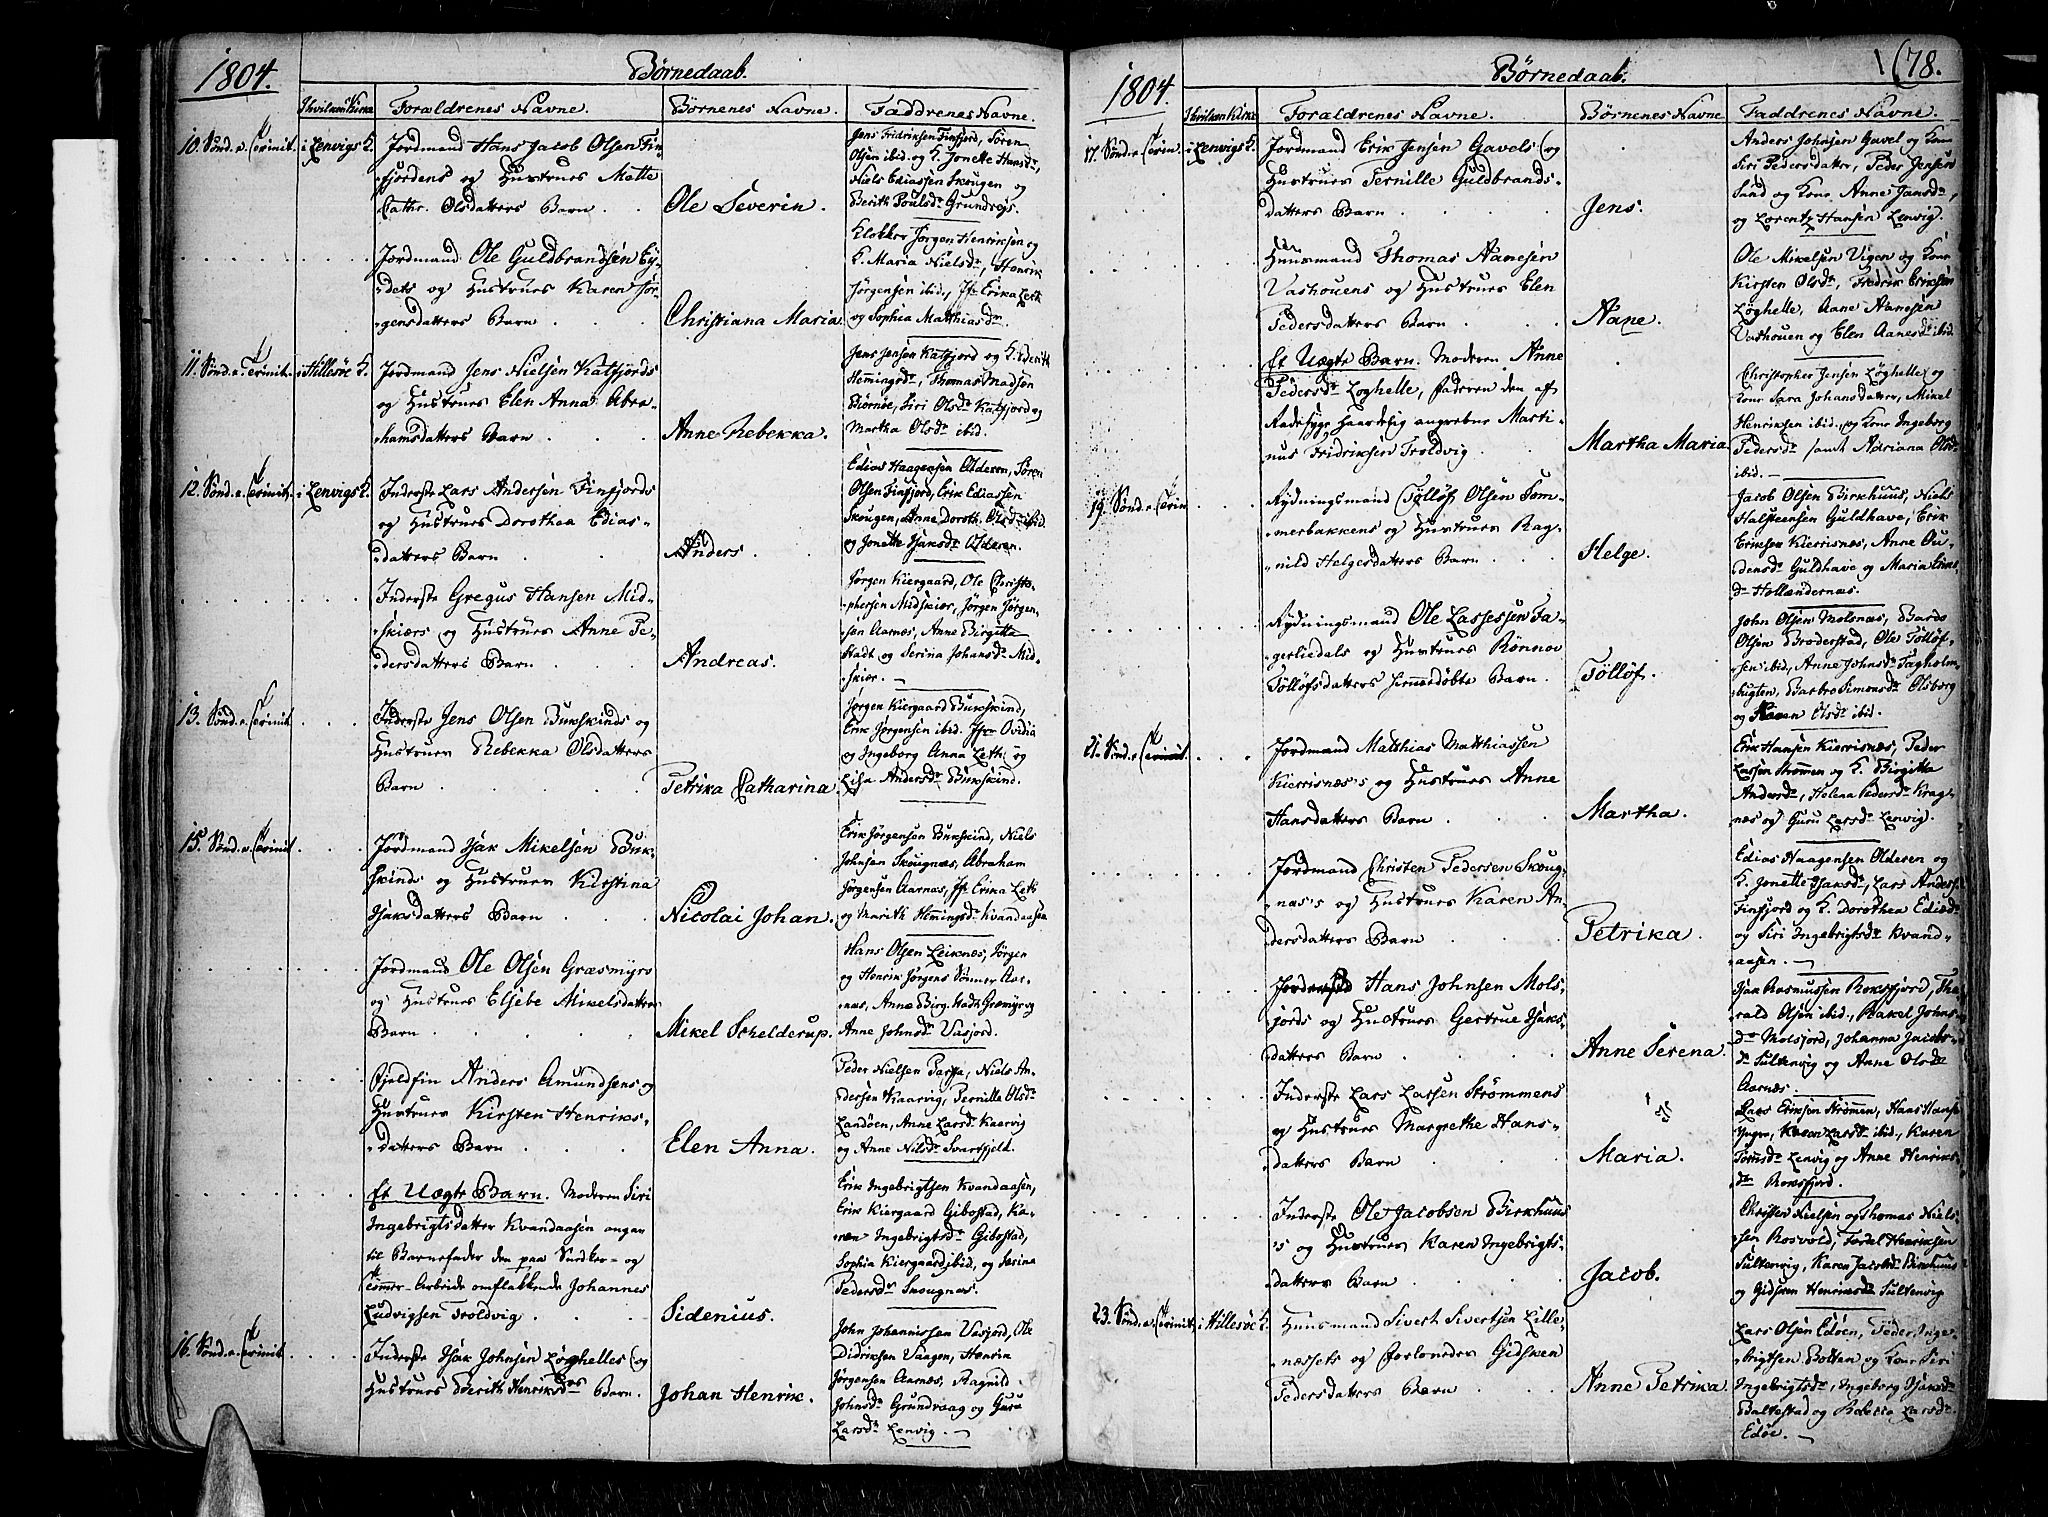 1804.
Børnedaab.
I hvilken Kirke
Forældrenes Navne.
Børnenes Navne.
Faddrenes Navne.
10. Sønd. e. Trinit.
i Lenvigs K.
Jordmand Hans Jacob Olsen Fin-
fjordens og Hustrues Mette
Cathr. Olsdatters Barn
Ole Severin.
Jens Fridriksen Finfjord, Sören
Olsen ibid. og K. Jonette Hansdr,
Niels Ediassen Skougen og
Berith Poulsdr Grundrøjs.
Jordmand Ole Guldbrandsen Ey-
dets og Hustrues Karen Jør-
gensdatters Barn
Christiana Maria
Klokker Jørgen Henriksen og
K. Maria Nielsdr, Henrik
Jörgensen ibid., Jfr Erika Leth
og Sophia Matthiasdr.
11. Sønd. e. Trinit.
i Hillesöe K.
Jordmand Jens Nielsen Katfjords
og Hustrues Elen Anna Abra-
hamsdatters Barn
Anne Rebekka.
Jens Jensen Katfjord og K. Berith
Hemingsdr, Thomas Madsen
Olsdr Katfjord og
Martha Olsdr ibid.
12. Sønd. e. Trinit.
i Lenvigs K.
Inderste Lars Andersen Finfjords
og Hustrues Dorothea Edias-
datters Barn
Anders.
Edias Haagensen Olderen, Sören
Olsen Finfjord, Erik Ediassen
Skougen, Anne Doroth. Olsdr ibid.
og Jonette Isaksdr Olderen.
Inderste Gregus Hansen Mid-
skiærs og Hustrues Anne Pe-
dersdatters Barn
Andreas.
Jørgen Kiergaard, Ole Christo-
phersen Midskiær, Jörgen Jörgen-
sen Aarnæs, Anne Birgitta
Stadt og Serina Johansdr Mid-
skiær.
13. Sønd. e. Trinit.
Inderste Jens Olsen Bukskinds og
Hustrues Rebekka Olsdatters
Barn
Petrika Catharina.
Jørgen Kiergaard Bukskind,
Erik Jørgensen ibid. Jfr Ovidia
og Ingeborg Anna Leth og
Lisa Andersdr Bukskind.
15. Sønd. e. Trinit.
Jordmand Isak Mikelsen Buk-
skinds og Hustrues Kirstina
Isaksdatters Barn
Nicolai Johan.
Erik Jørgensen Bukskind, Niels
Johnsen Skougnæs, Abraham
Jörgensen Aarnæs, Jfr Erika Leth
og Marith Hemingsdr Kvandaasen
Jordmand Ole Olsen Græsmyrs
og Hustrues Elsebe Mikelsdatters
Barn
Mikel Schelderup.
Hans Olsen Leiknes, Jörgen
og Henrik Jörgens Sönner Aar-
næs, Anne Birg. Stadt Græsmyr og
Anne Johnsdr Vasjord.
Fjeldfin Anders Amundsens og
Hustrues Kirsten Henriks-
datters Barn
Elen Anna.
Peder Nielsen Parssa, Niels An-
dersen Kaarvig, Pernille Olsdr
Landöen, Anne Larsdr Kaarvig
og Anne Nilsdr Svartfjeld.
Et Uægte Barn. Moderen Siri
Ingebrigtsdatter Kvandaasen angav
til Barnefader den paa Snedker- og
Tömmer-Arbeide omflakkende Johannes
Ludvigsen Troldvig
Sidenius.
Erik Ingebrigtsen Kvandaasen,
Erik Kiergaard Gibostad, Ka-
ren Ingebrigtsdr Gibostad,
Sophia Kiergaard ibid. og Serina
Pedersdr Skougnæs.
16. Sønd. e. Trinit.
Inderste Isak Johnsen Løghelles og
Hustrues Berith Henriksdrs Barn.
Johan Henrik.
John Johannissen Vasjord, Ole
Didriksen Vaagen, Henrik
Jörgensen Aarnæs, Ragnild
Johnsdr Grundvaag og Guru
Larsdr Lenvig.
178.
1804.
Børnedaab.
I hvilken Kirke
Forældrenes Navne.
Børnenes Navne
Faddrenes Navne.
17. Sønd. e. Trin.
i Lenvigs K.
Jordmand Erik Jensen Gavels og
Hustrues Pernille Guldbrands-
datters Barn
Jens.
Anders Johnsen Gavel og Kone
Siri Pedersdatter, Peder Jensen
Sand og Kone Anne Jansdr,
og Lorentz Hansen Lenvig.
Huusmand Thomas Aanesen
Vashouens og Hustrues Elen
Pedersdatters Barn
Aane.
Ole Mikelsen Vigen og Kone
Kirsten Olsdr, Fredrik Eriksen
Løghelle, Aane Aanesen
Vashouen og Elen Aanesdr ibid.
Et Uægte Barn. Moderen Anne
Pedersdr Loghelle, faderen den af
Radesyge haardelig angrebne Marti-
nus Fridriksen Troldvig
Martha Maria
Christopher Jensen Løghelle og
Kone Sara Johansdatter, Mikel
Henriksen ibid. og Kone Ingeborg
Pedersdr samt Adriana Olsdr
ibid.
19. Sønd. e. Trin.
Rydningsmand Tölløf Olsen Tom-
merbakkens og Hustrues Rag-
nild Helgesdatters Barn
Helge.
Jacob Olsen Birkhuus, Niels
Halsteensen Guldhave, Erik
Eriksen Kierrisnæs, Anne Ou-
densdr Guldhave og Maria
dr Hollandernæs.
Rydningsmand Ole Lassesen Fa-
gerliedals og Hustrues Rönnov
Tölløfsdatters hjemmedöbte Barn.
Tölløf.
John Olsen Molsnæs, Bardo
Olsen Broderstad, Ole Tölløf-
sen ibid, Anne Johnsdr Fagholm-
bugten, Barbro Simensdr Olsborg
og Karen Olsdr ibid.
21. Sønd. e. Trinit.
Jordmand Matthias Matthiassen
Kierrisnæs's og Hustrues Anne
Hansdatters Barn
Martha.
Erik Hansen Kierrisnæs, Peder
Lassen Strømmen og K. Birgitta
Andersdr, Helena Pedersdr Krag-
næs og Guru Larsdr Lenvig.
Jordmand Christen Pedersen Skoug-
næs's og Hustrues Karen An-
dersdatters Barn
Petrika.
Edias Haagensen Olderen og
K. Jonette Isaksdr, Lars Anders.
Finfjord og K. Dorothea Ediædr
og Siri Ingebrigtsdr Kvand-
aasen.
Hans Johnsen Mols-
jords og Hustrues Gertrue Isaks-
datters Barn
Anne Serena.
Isak Rasmussen Roksfjord, Tha-
rald Olsen ibid., Rakel Johns-
dr Molsjord, Johanna Jacobs-
dr Sultenvig og Anne Olsdr
Aarnæs.
Inderste Lars Larsen Strømmens
og Hustrues Margrethe Hans-
datters Barn
Maria.
Lars Eriksen Strömmen, Hans Hansen
Karen Larsdr ibid., Karen
Lenvig og Anne Henriks-
dr Roksfjord.
Inderste Ole Jacobsen Birkhuus
's og Hustrues Karen Ingebrigts-
datters Barn
Jacob.
Christen Nielsen og Thomas Niel-
sen Rosvold, Henriksen
Sultenvig, Karen Jacobsdr Birkhuus
og Gidsken Henriksdr Sultenvig
23. Sønd. e. Trinit.
i Hillesöe K.
Huusmand Sivert Sivertsen Lille-
næssets og forlovedes Gidsken
Pedersdatters Barn
Anne Petrika.
Lars Olsen Edöen, Peder Inge-
brigtsen Bolten og Kone Siri
Ingebrigtsdr, Ingeborg Isaksdr
Baltestad og Larsdr
Edöe.